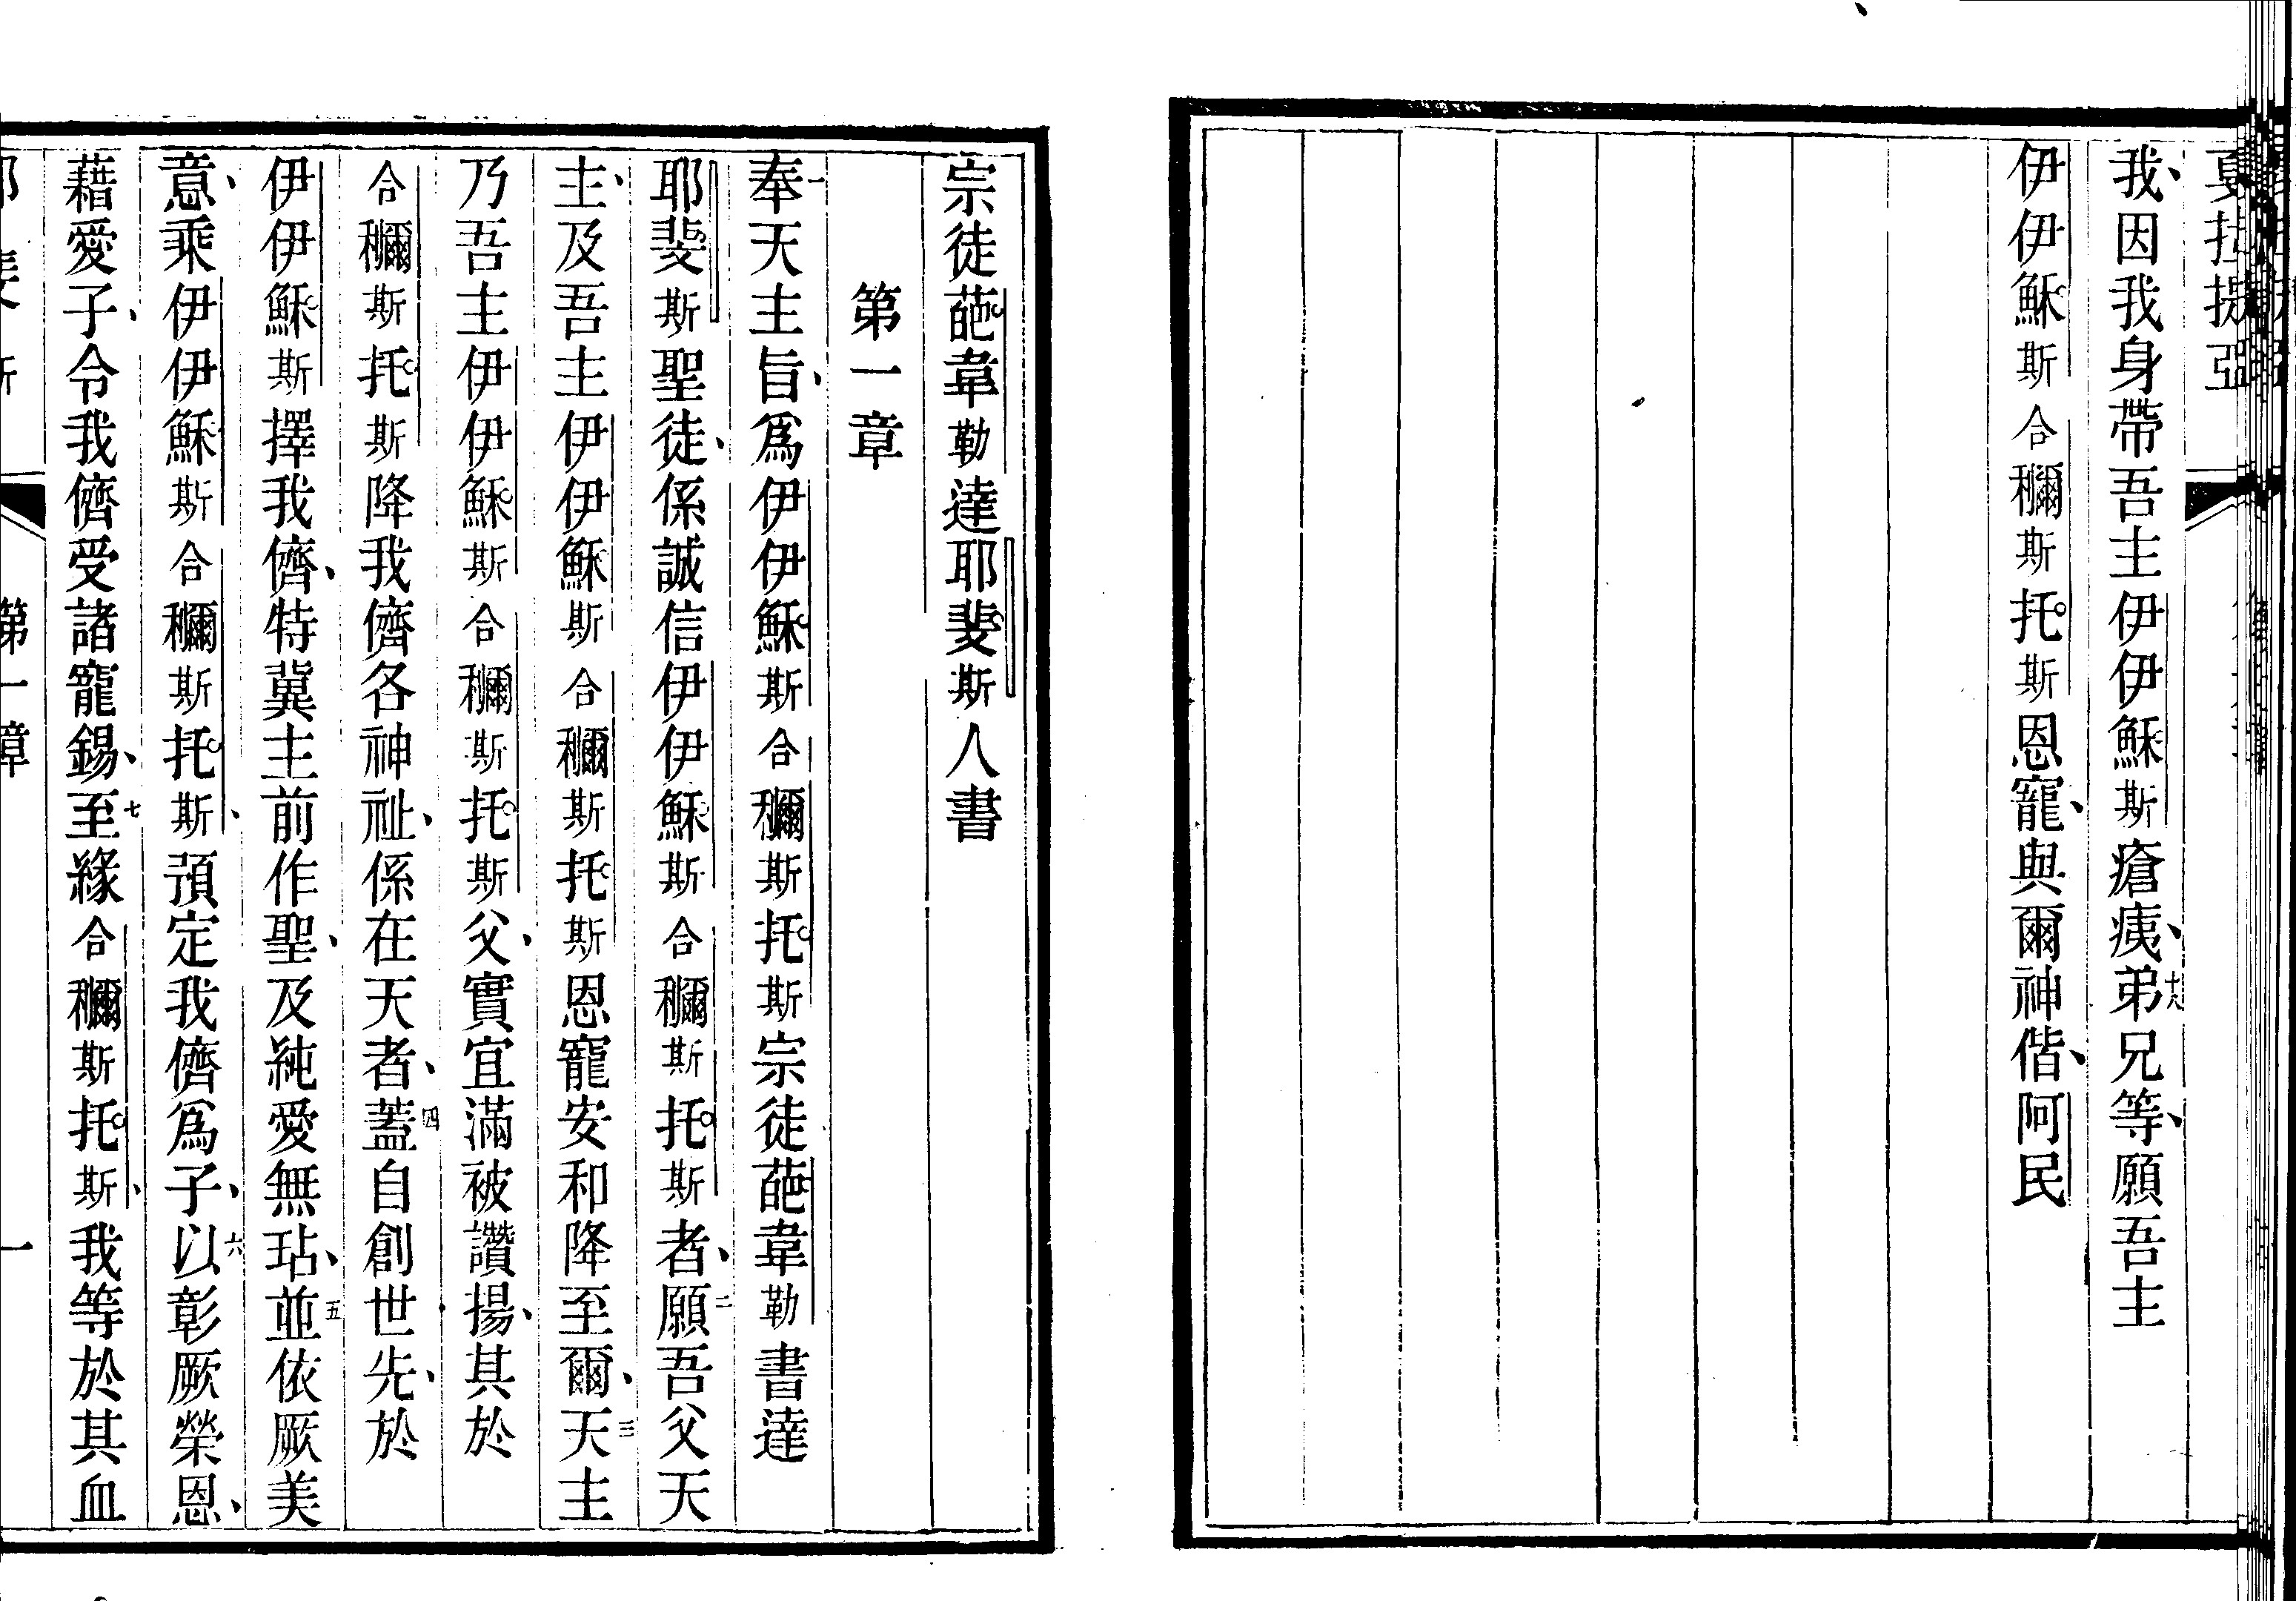 我、因我身帶吾主伊伊穌斯瘡痍、十八弟兄等、願吾主
伊伊穌斯合穪斯托斯恩寵、與爾神偕、阿民
宗徒葩韋勒達耶斐斯人書
第一章
一奉天主旨、爲伊伊穌斯合穪斯托斯宗徒葩韋勒書達
耶斐斯聖徒、係誠信伊伊穌斯合穪斯托斯者、二願吾父天
主、及吾主伊伊穌斯合穪斯托斯恩寵安和降至爾、三天主
乃吾主伊伊穌斯合穪斯托斯父、實宜滿被讚揚、其於
合穪斯托斯降我儕各神祉、係在天者、四蓋自創世先、於
伊伊穌斯擇我儕、特兾主前作聖、及純愛無玷、五並依厥美
意、乘伊伊穌斯合穪斯托斯、預定我儕爲子、六以彰厥榮恩、
藉愛子、令我儕受諸寵錫、七至緣合穪斯托斯、我等於其血
第一章
一